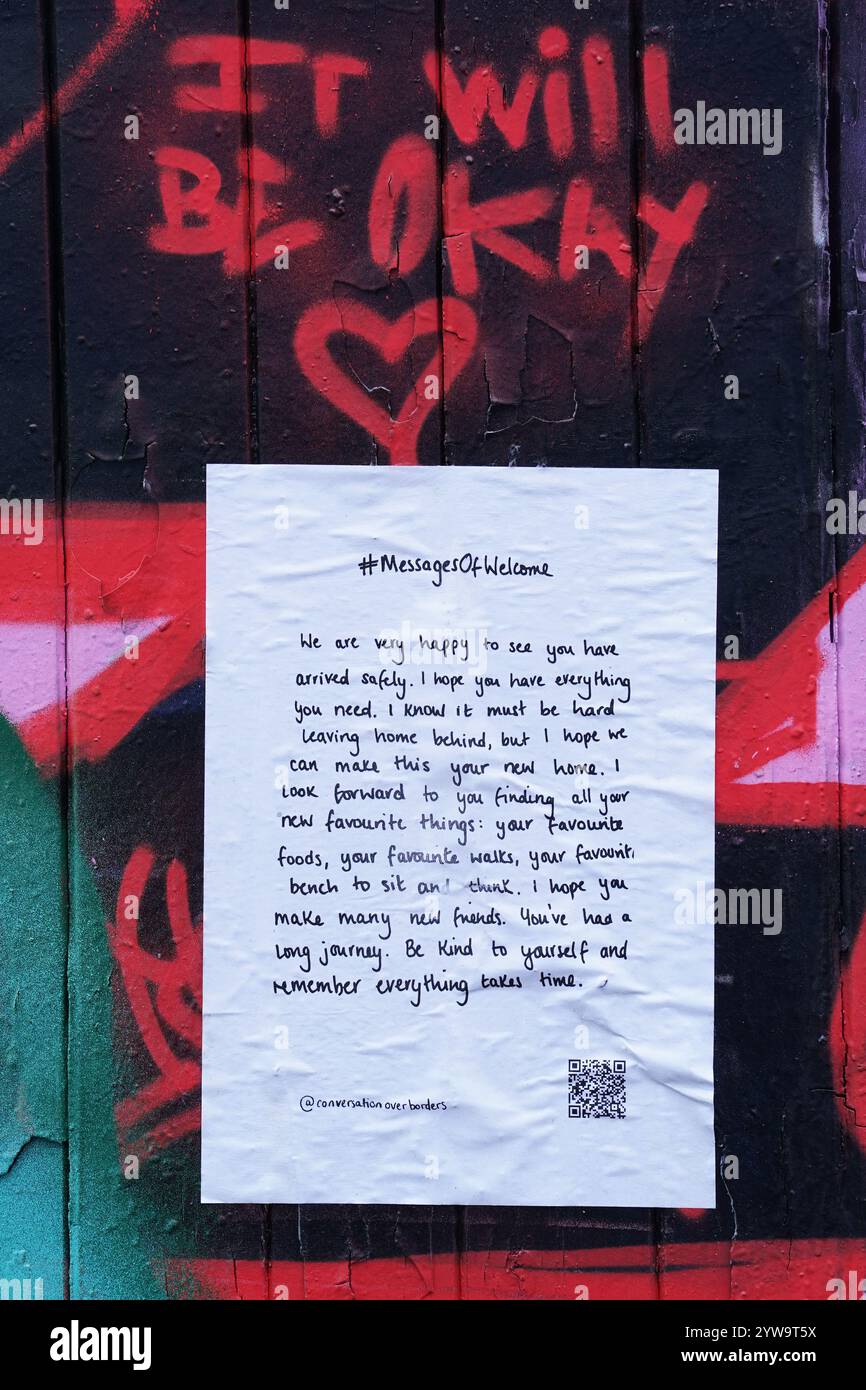 IT Will
BE OKAY
#MessagesOfWelcome
We are very happy to see you have
arrived safely. I hope you have everything
you need. I know it must be hard
leaving home behind, but I hope we
can make this your new home. I
look forward to you finding all your
new favourite things: your favourite
foods, your favourite walks, your favourit
bench to sit and think. I hope you
make many new friends. You've had a
long journey. Be kind to yourself and
remember everything takes time.
@conversationoverborders
alamy
Image ID: 2YW9T5X
www.alamy.com